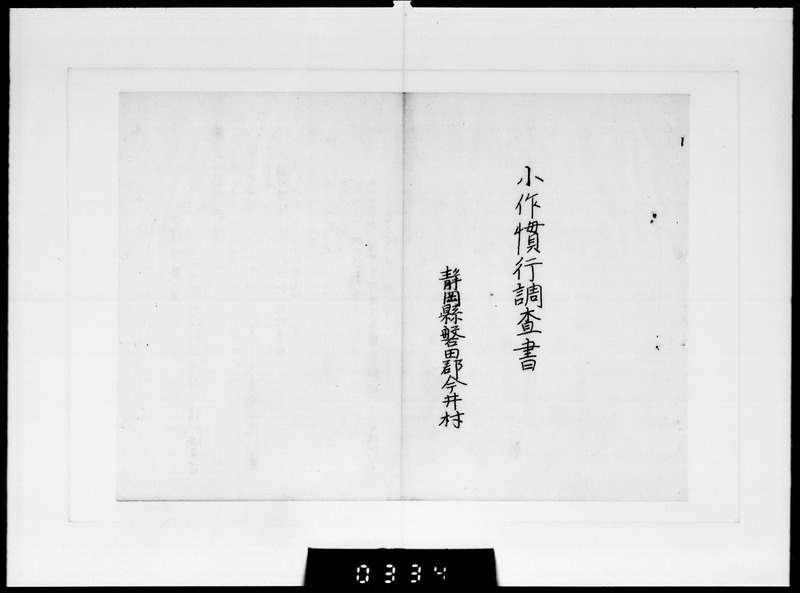 小作慣行調査書
静岡縣磐田郡今井村
0334